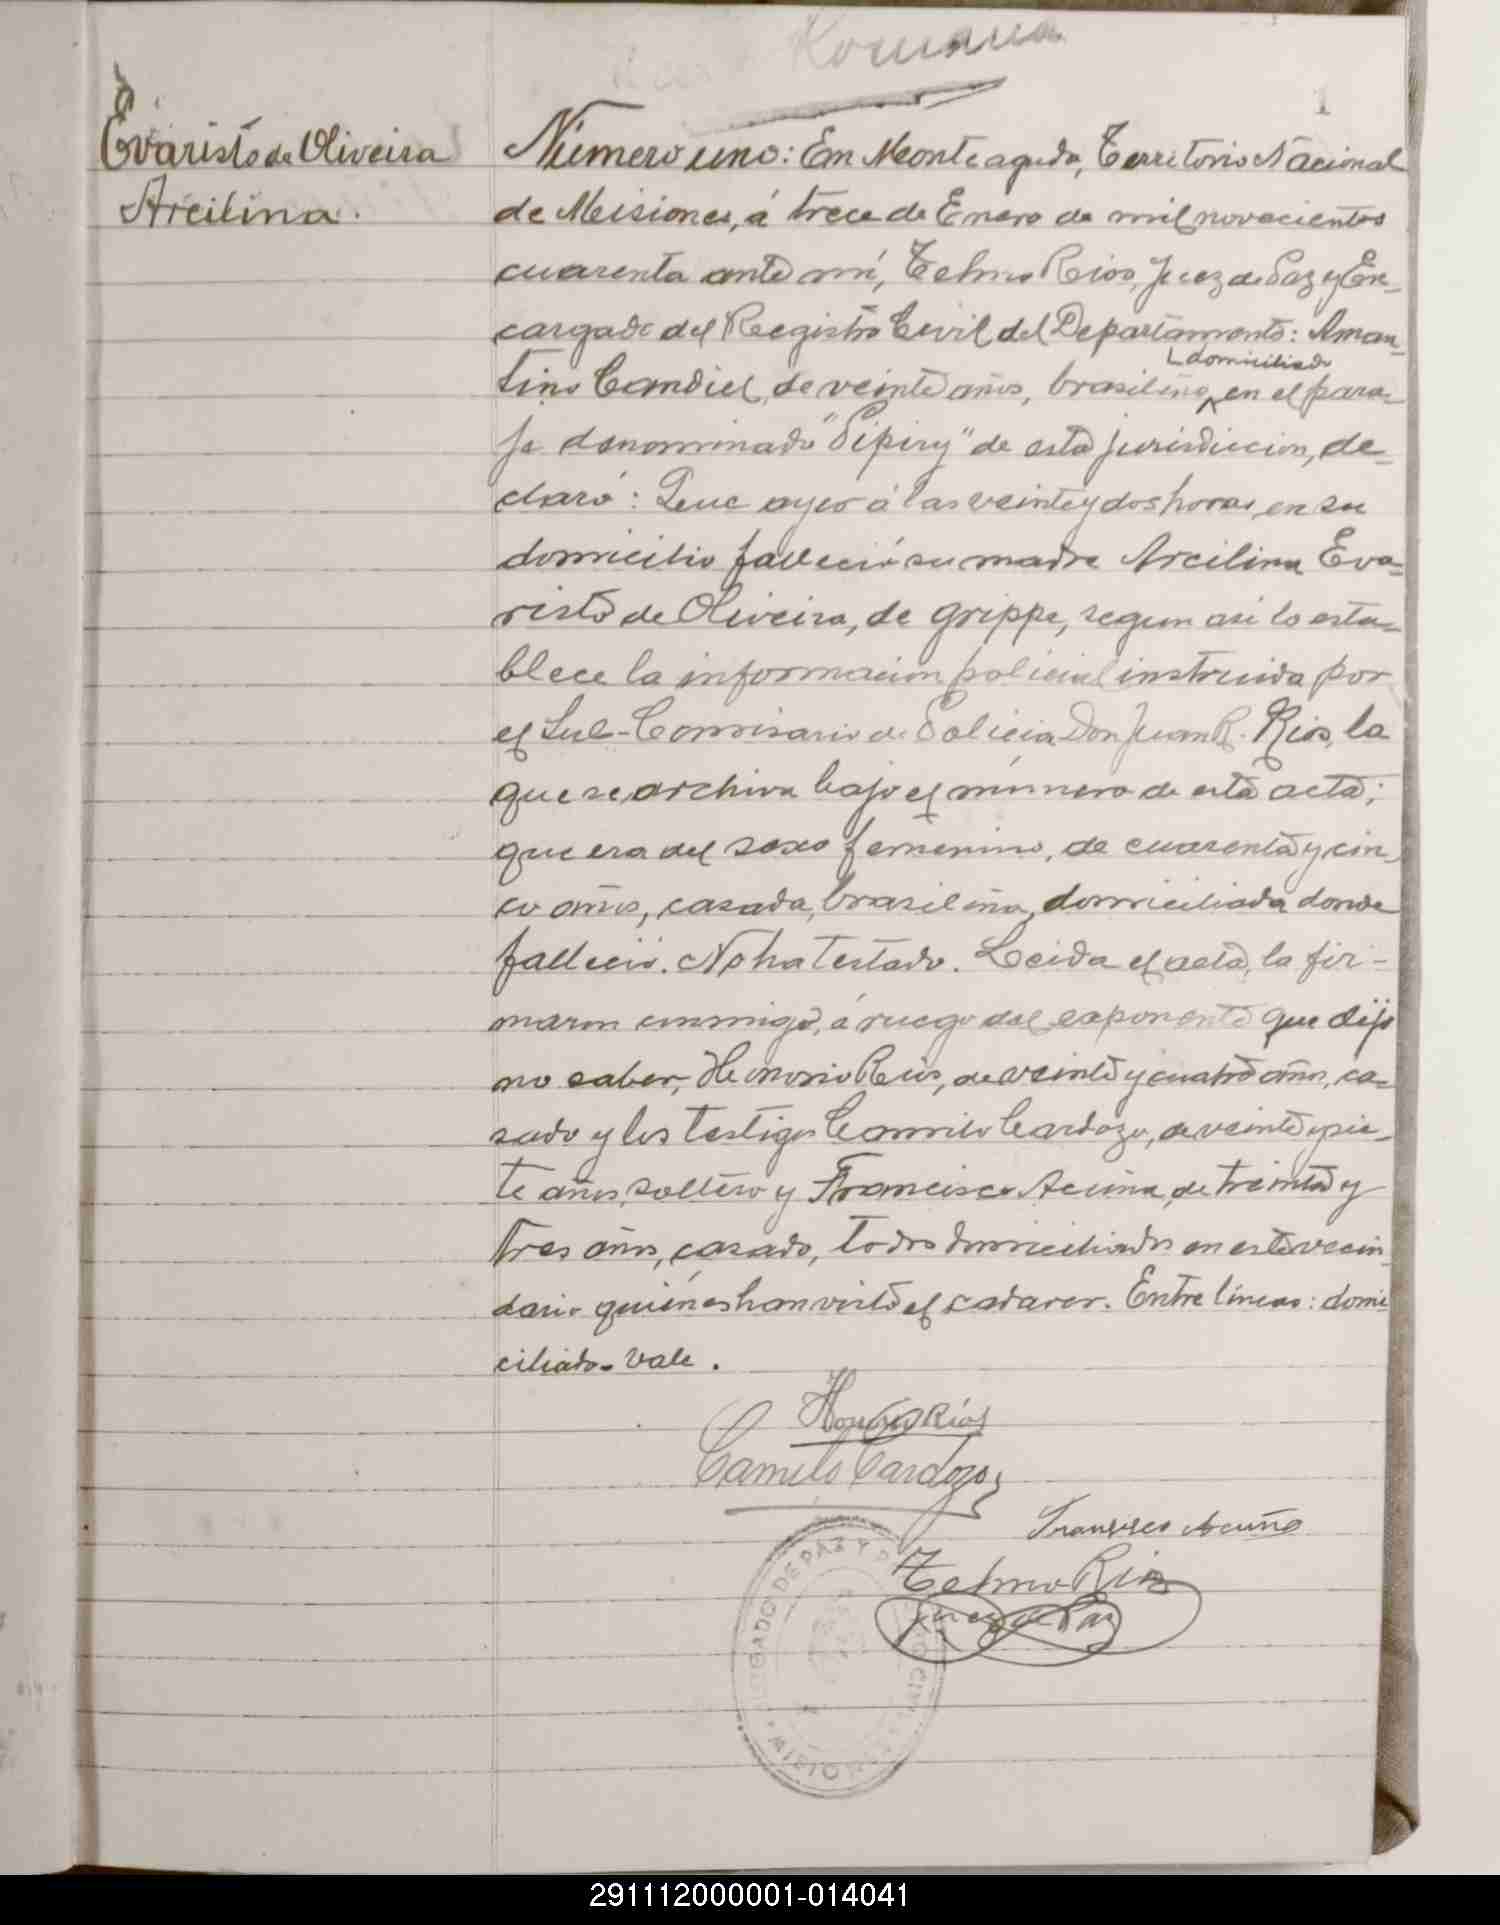 1
Evaristo de Oliveira
Arcilina.
Número uno: Em Monteagudo, Territorio Nacional
de Misiones, á trece de Enero de mil novecientos
cuarenta ante mí, Telmo Rios, Juez de Paz y En-
cargado del Registro Civil del Departamento: Aman-
domiciliado
tino Candiel, de veinte años, brasileño, en el para-
je denominado "Pipiry" de esta jurisdiccion, de-
claró: Que ayer á las veinte y dos horas, en su
domicilio falleció su madre Arcilina Eva-
risto de Oliveira, de grippe, segun asi lo esta-
blece la informacion policial instruida por
el Sub-Comisario de Policia Don Juan R. Rios, la
que se archiva bajo el número de esta acta;
que era del sexo femenino, de cuarenta y cin-
co años, casada, brasileña, domiciliada donde
falleció. No ha testado. Leida el acta, la fir-
maron conmigo, á ruego del exponente que dijo
no saber, Honorio Rios, de veinte y cuatro años, ca-
sado y los testigos Camilo Cardozo, de veinte y sie-
te años, soltero y Francisco Acuña, de treinta y
tres años, casado, todos domiciliados en este vecin-
dario quiénes han visto el cadaver. Entre líneas: domi-
ciliado-vale.
Honorio Ríos
Camilo Cardozo
Francisco Acuña
Telmo Rios
Juez de Paz
JUZGADO DE PAZ Y
291112000001-014041